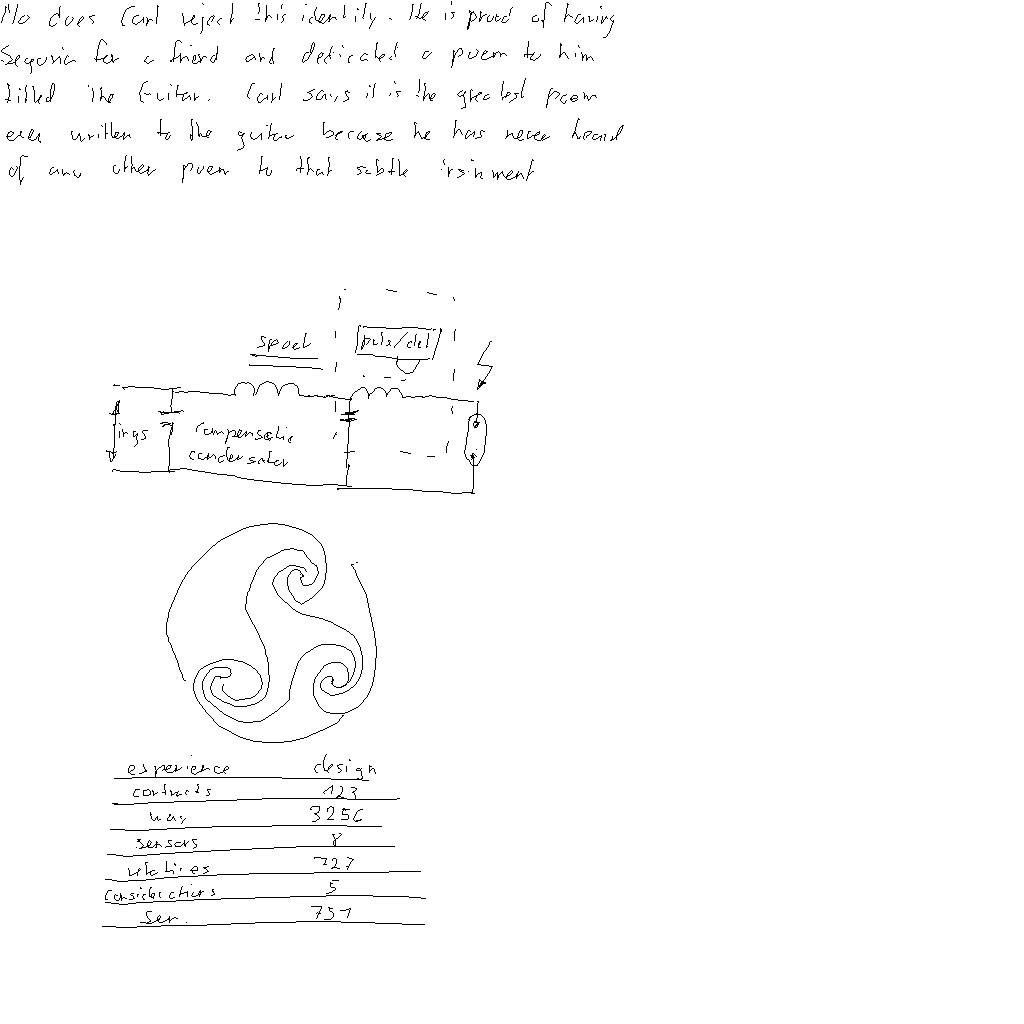 No does Carl reject this identity. He is proud of having
Segovia for a friend and dedicated a poem to him
titled The Guitar. Carl says it is the greatest poem
ever written to the guitar because he has never heard
of any other poem to that subtle insinment
spoel
puls/del
ings
compensatie
condensator
experience design
contracts 123
way 3256
sensors 8
relatives 727
considerations 5
Ser. 751